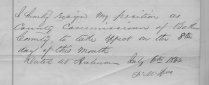 I hereby resign my position as
County Commissioner of
County to take effect on the 8th
day of this Month
Dated at Auburn July 6th